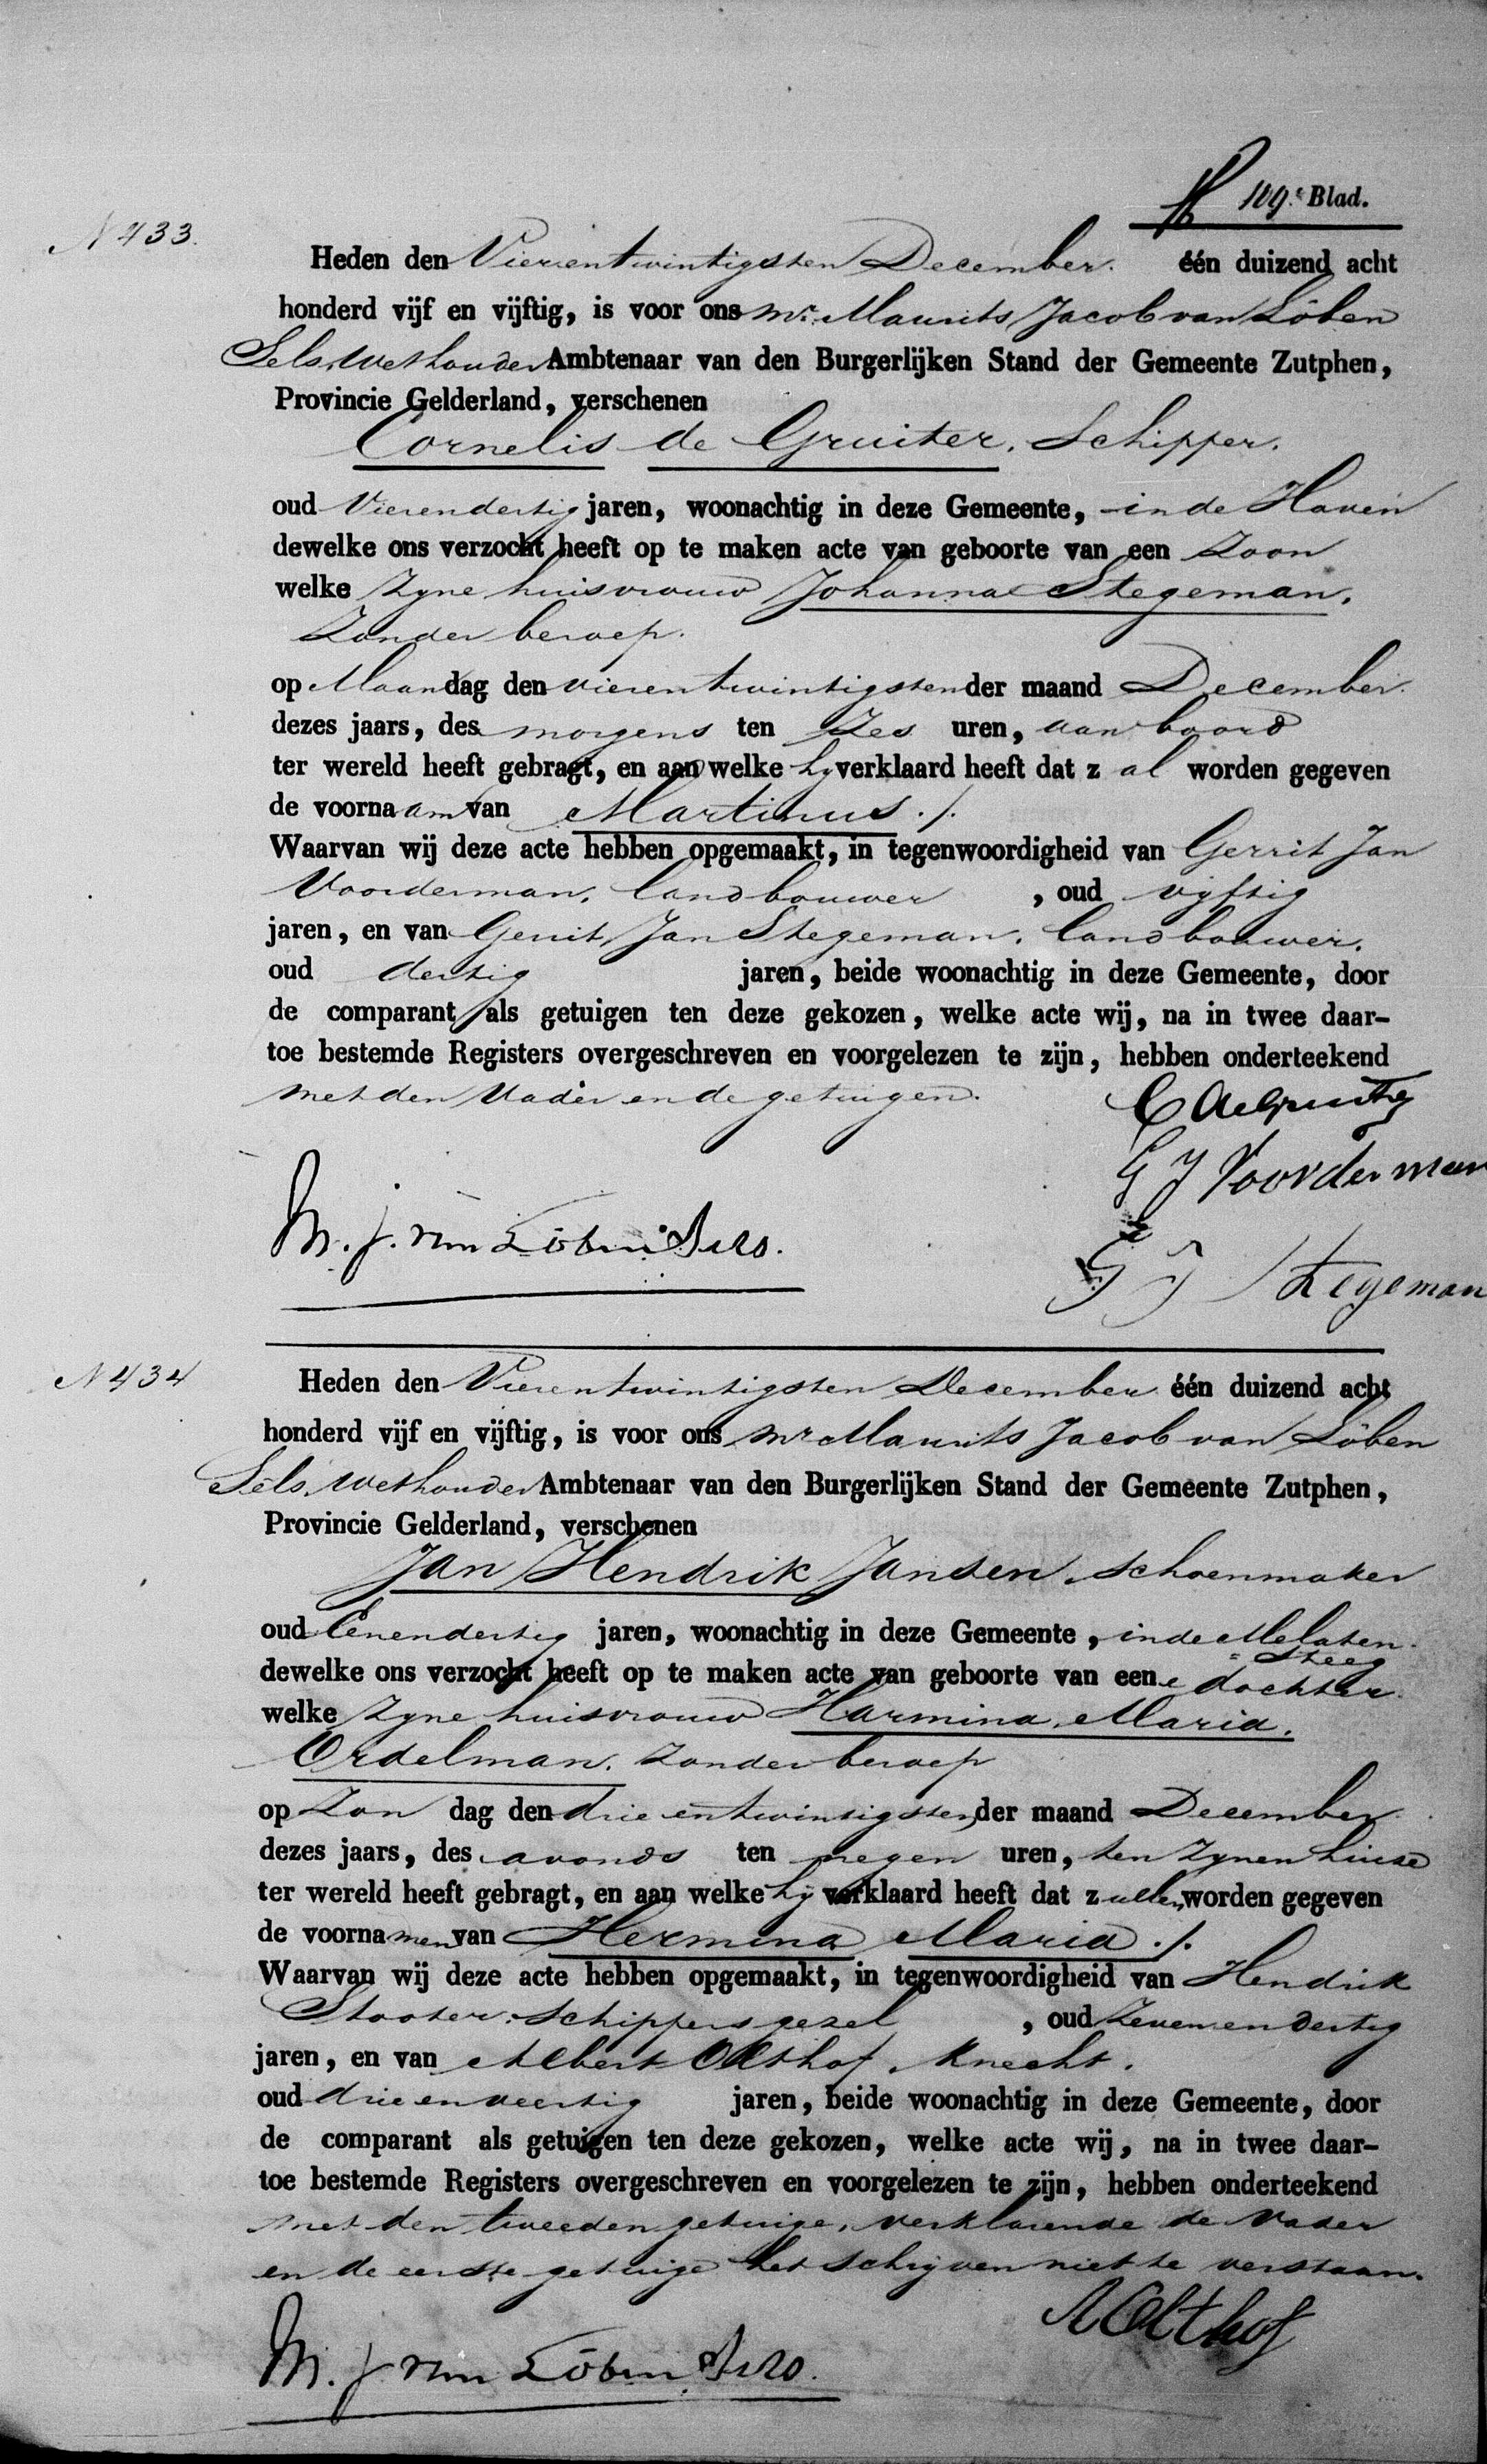 109.e Blad.
N 433.
Heden den Vierentwintigsten December. één duizend acht
honderd vijf en vijftig, is voor ons Mr. Maurits Jacob van Löben
Sels, Wethouder Ambtenaar van den Burgerlijken Stand der Gemeente Zutphen,
Provincie Gelderland, verschenen
Cornelis de Gruiter, Schipper.
oud Vierendertig jaren, woonachtig in deze Gemeente, in de Haven
dewelke ons verzocht heeft op te maken acte van geboorte van een Zoon
welke Zyne huisvrouw Johanna Stegeman.
Zonder beroep.
op Maandag den vierentwintigsten der maand December.
dezes jaars, des morgens ten Zes uren, aan boord
ter wereld heeft gebragt, en aan welke hy verklaard heeft dat z al worden gegeven
de voornaam van Martinus ./.
Waarvan wij deze acte hebben opgemaakt, in tegenwoordigheid van Gerrit Jan
Voorderman, landbouwer , oud vyftig
jaren, en van Gerrit Jan Stegeman, landbouwer,
oud dertig jaren, beide woonachtig in deze Gemeente, door
de comparant als getuigen ten deze gekozen, welke acte wij, na in twee daar-
toe bestemde Registers overgeschreven en voorgelezen te zijn, hebben onderteekend
met den Vader en de getuigen.
C de Gruiter
G J Voorderman
M. J. van Löben Sels.
G J Stegeman
N 434
Heden den Vierentwintigsten December één duizend acht
honderd vijf en vijftig, is voor ons Mr Maurits Jacob van Löben
Sels, Wethouder Ambtenaar van den Burgerlijken Stand der Gemeente Zutphen,
Provincie Gelderland, verschenen
Jan Hendrik Jansen, Schoenmaker
oud Eenendertig jaren, woonachtig in deze Gemeente, in de Melaten
= Steeg
dewelke ons verzocht heeft op te maken acte van geboorte van eene dochter
welke Zyne huisvrouw Harmina Maria.
Ordelman, Zonder beroep
op Zon dag den drie entwintigsten der maand December.
dezes jaars, des avonds ten negen uren, ten Zynen huize
ter wereld heeft gebragt, en aan welke hy verklaard heeft dat z ullen worden gegeven
de voornamen van Hermina Maria ./.
Waarvan wij deze acte hebben opgemaakt, in tegenwoordigheid van Hendrik
Stooter, Schippersgezel , oud Zevenendertig
jaren, en van Albert Olthof, Knecht.
oud drie en veertig jaren, beide woonachtig in deze Gemeente, door
de comparant als getuigen ten deze gekozen, welke acte wij, na in twee daar-
toe bestemde Registers overgeschreven en voorgelezen te zijn, hebben onderteekend
met den tweeden getuige, verklarende de Vader
en de eerste getuige het schrijven niet te verstaan.
A Olthof
M. J. van Löben Sels.